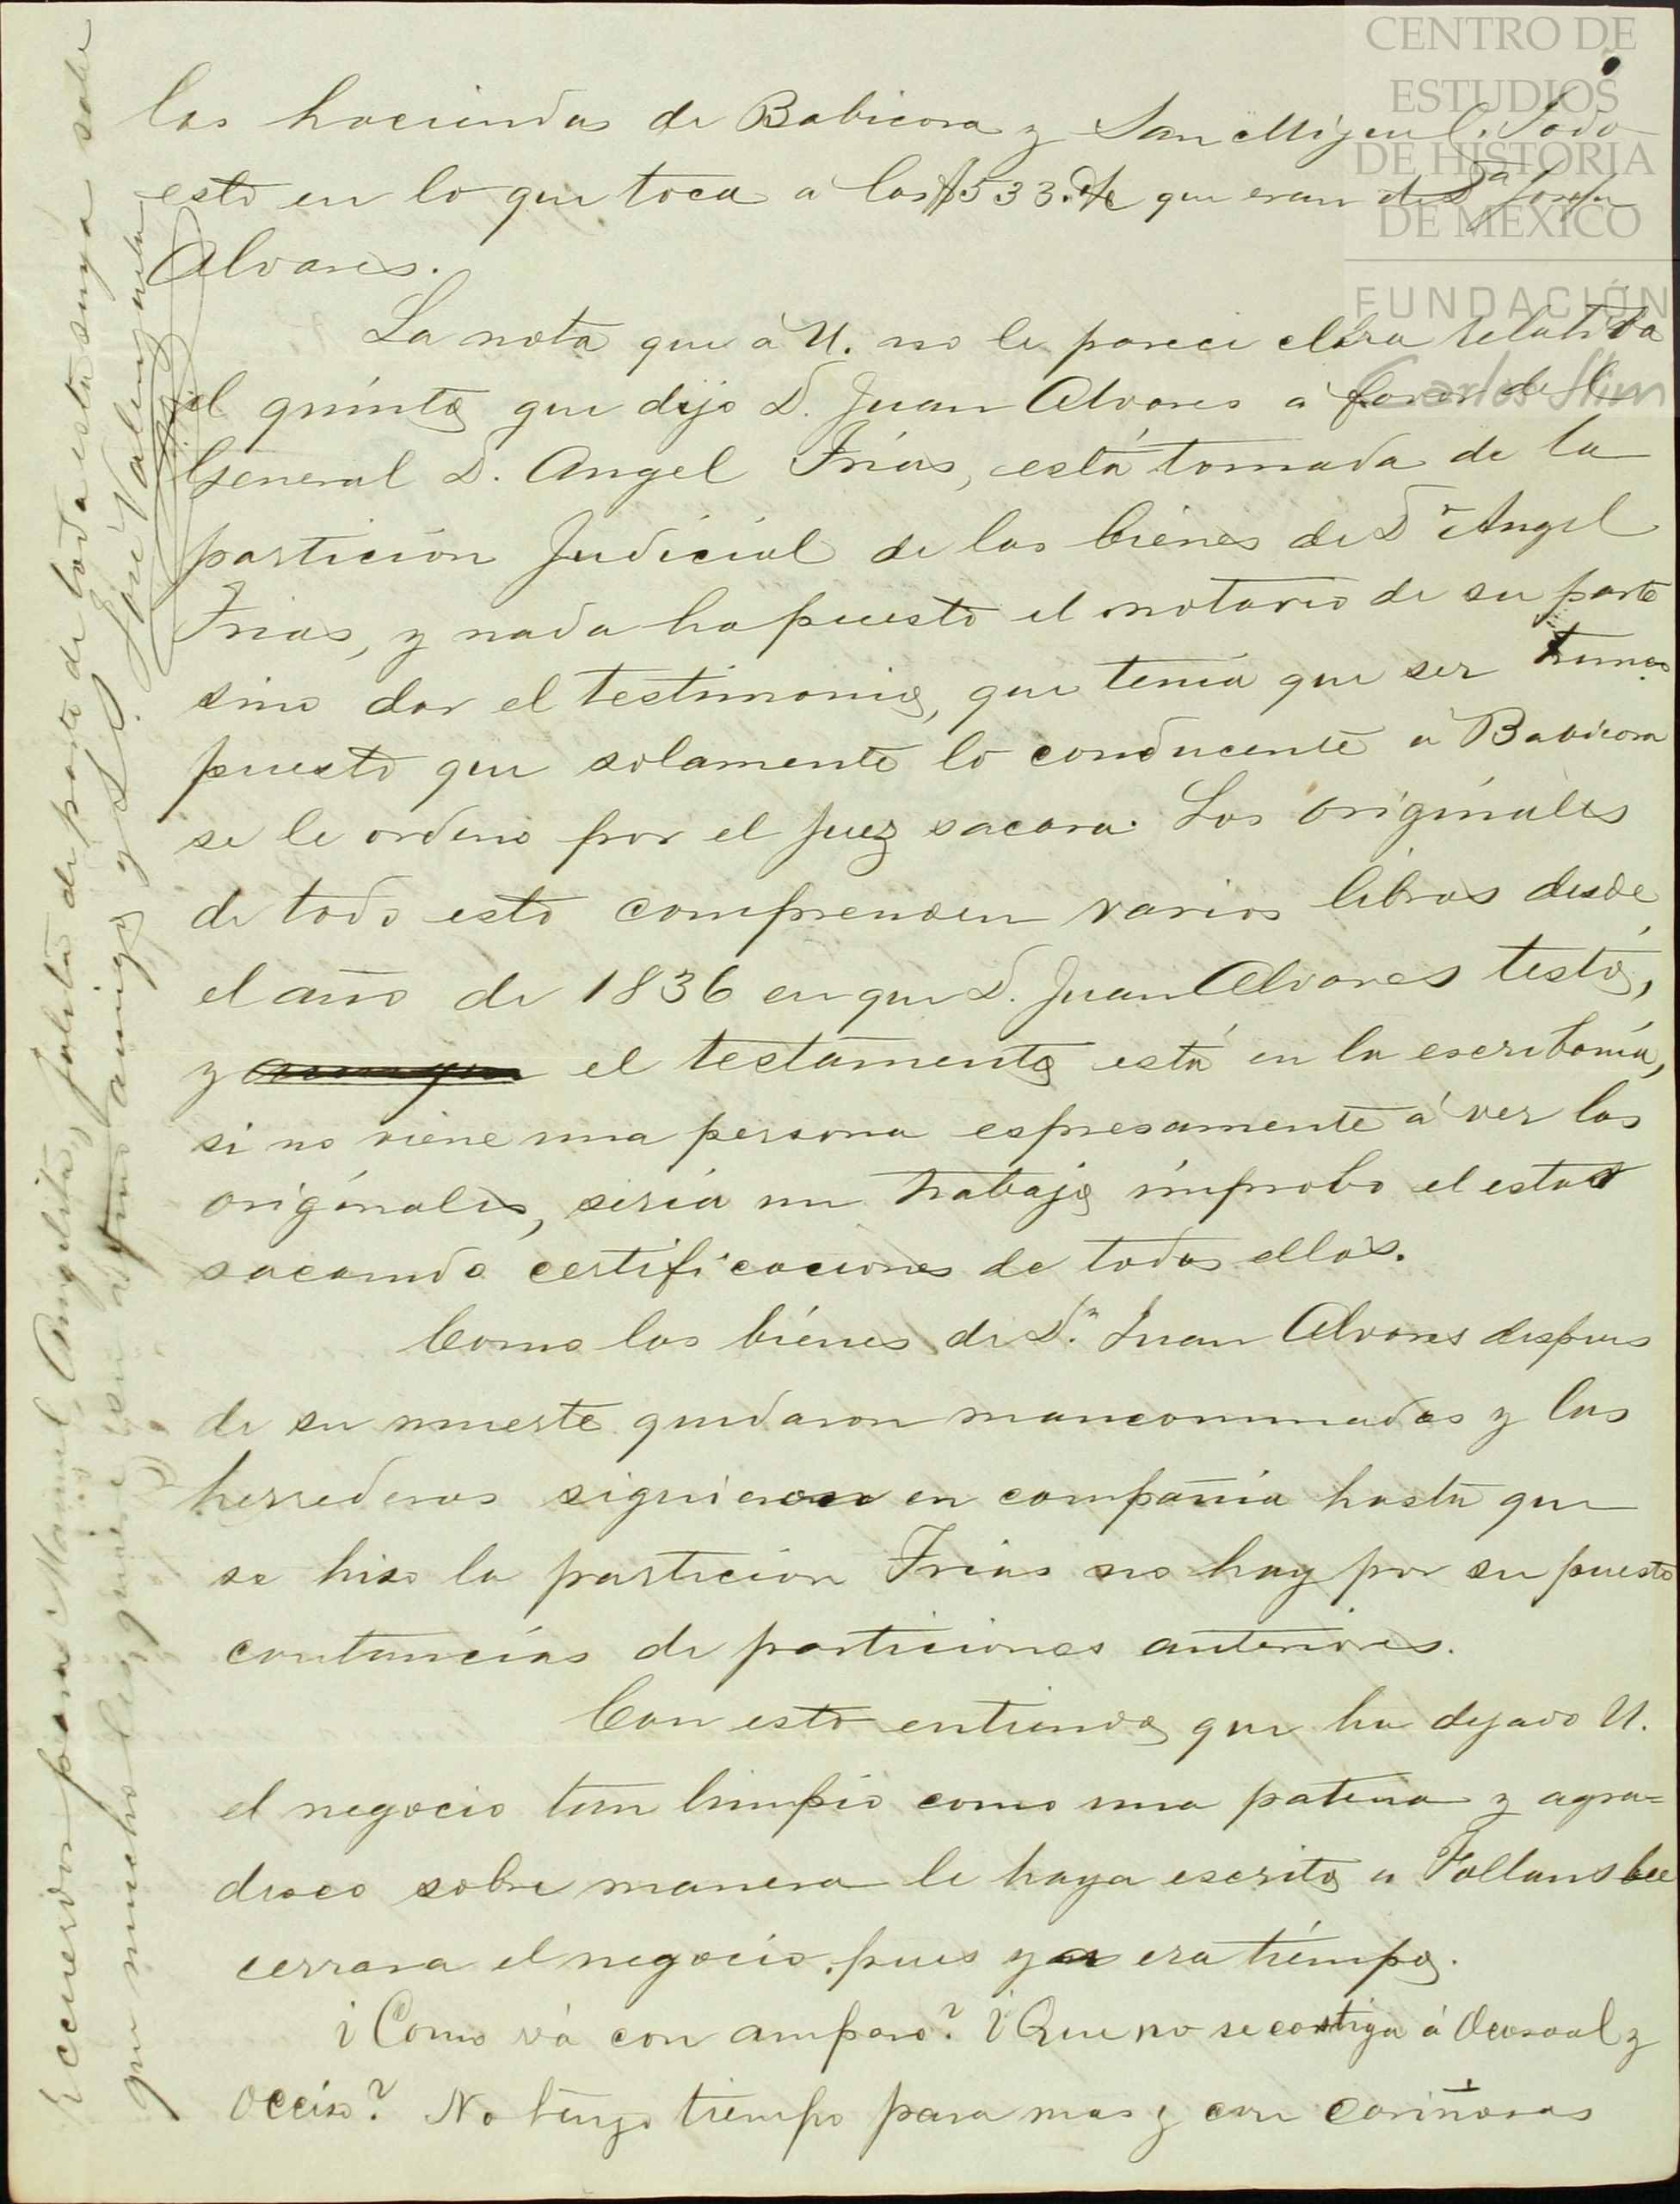 las haciendas de Babicora y San Miguel. Todo
esto en lo que toca a los $533. que eran de Dª Josefa
Alvares.
La nota que á U. no le parece clara relativa
al quinto que dejo D. Juan Alvares a favor del
General D. Angel Frias, está tomada de la
partición Judicial de los bienes de Dn Angel
Frias, y nada ha puesto el notario de su parte
sino dar el testimonio, que tenia que ser trunco
puesto que solamente lo conducente a Babicora
se le ordeno por el Juez sacara. Los originales
de todo esto comprenden varios libros desde
el año de 1836 en que D. Juan Alvares testó,
y aunque el testamento está en la escribanía,
si no viene una persona espresamente á ver los
originales, sería un trabajo improbo el estar
sacando certificaciones de todos ellos.
Como los bienes de Dn. Juan Alvares despues
de su muerte quedaron mancomunados y los
herrederos siguieron en compañia hasta que
se hiso la particion Frias no hay por su puesto
contancias de particiones anteriores.
Con esto entiendo que ha dejado U.
el negocio tan limpio como una patena y agra=
desco sobre manera le haya escrito a Follansbee
cerrara el negocio, pues ya era tiempo.
¿Como vá con amparo? ¿Que no se castiga á y
Occiso? No tengo tiempo para mas y con cariñosos
recuerdos para Manuel Angelita, Julita de parte de toda esta suya sabe
que mucho les quiere su afmo amigo y S.S.
José Valenzuela
CENTRO DE
ESTUDIOS
DE HISTORIA
DE MÉXICO
FUNDACIÓN
Carlos Slim